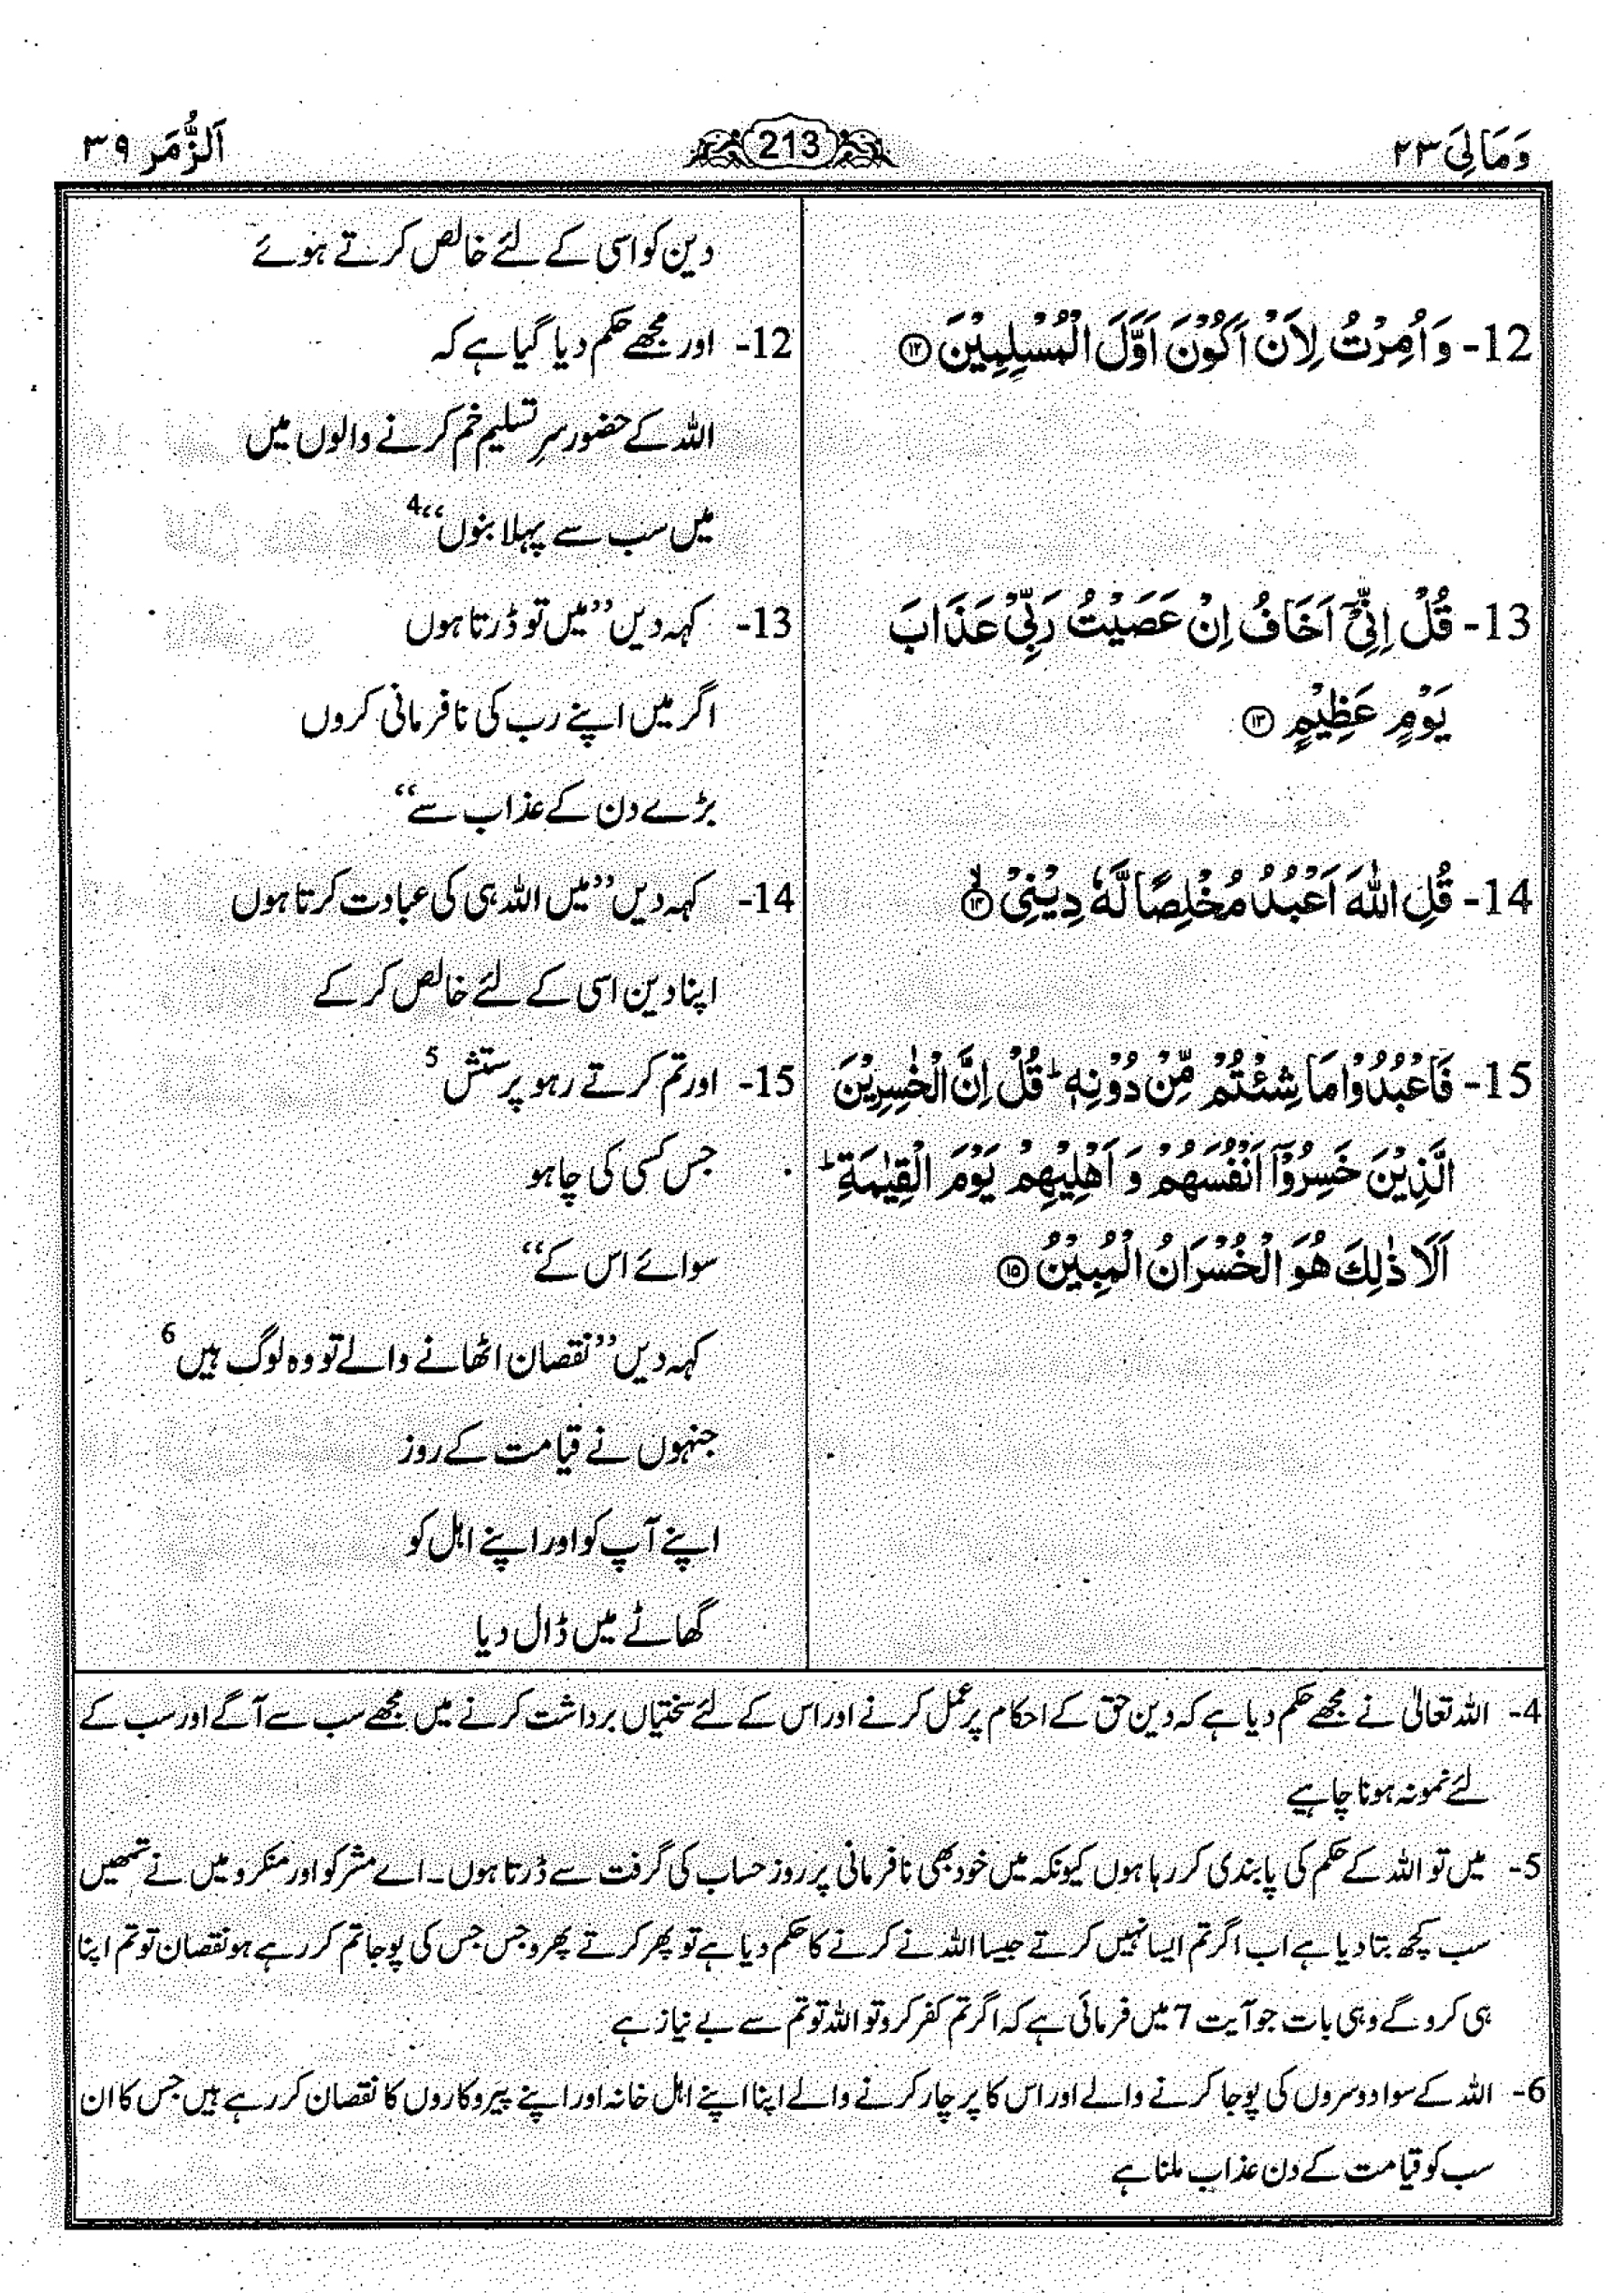 وَمَالِیَ ۲۳
213
اَلزُّمَر ۳۹
12- وَ اُمِرْتُ لِاَنْ اَكُوْنَ اَوَّلَ الْمُسْلِمِيْنَ ⑫
13- قُلْ اِنِّيْۤ اَخَافُ اِنْ عَصَيْتُ رَبِّيْ عَذَابَ
يَوْمٍ عَظِيْمٍ ⑬
14- قُلِ اللّٰهَ اَعْبُدُ مُخْلِصًا لَّهٗ دِيْنِيْ ⑭ۙ
15- فَاعْبُدُوْا مَا شِئْتُمْ مِّنْ دُوْنِهٖ ؕ قُلْ اِنَّ الْخٰسِرِيْنَ
الَّذِيْنَ خَسِرُوْۤا اَنْفُسَهُمْ وَ اَهْلِيْهِمْ يَوْمَ الْقِيٰمَةِ ؕ
اَلَا ذٰلِكَ هُوَ الْخُسْرَانُ الْمُبِيْنُ ⑮
دین کو اسی کے لئے خالص کرتے ہوئے
12- اور مجھے حکم دیا گیا ہے کہ
اللہ کے حضور سرِ تسلیم خم کرنے والوں میں
میں سب سے پہلا بنوں“ 4
13- کہہ دیں ”میں تو ڈرتا ہوں
اگر میں اپنے رب کی نافرمانی کروں
بڑے دن کے عذاب سے“
14- کہہ دیں ”میں اللہ ہی کی عبادت کرتا ہوں
اپنا دین اسی کے لئے خالص کر کے
15- اور تم کرتے رہو پرستش 5
جس کسی کی چاہو
سوائے اس کے“
کہہ دیں ”نقصان اٹھانے والے تو وہ لوگ ہیں 6
جنہوں نے قیامت کے روز
اپنے آپ کو اور اپنے اہل کو
گھاٹے میں ڈال دیا
4- اللہ تعالیٰ نے مجھے حکم دیا ہے کہ دین حق کے احکام پر عمل کرنے اور اس کے لئے سختیاں برداشت کرنے میں مجھے سب سے آگے اور سب کے
لئے نمونہ ہونا چاہیے
5- میں تو اللہ کے حکم کی پابندی کر رہا ہوں کیونکہ میں خود بھی نافرمانی پر روز حساب کی گرفت سے ڈرتا ہوں۔ اے مشرکو اور منکرو میں نے تمھیں
سب کچھ بتا دیا ہے اب اگر تم ایسا نہیں کرتے جیسا اللہ نے کرنے کا حکم دیا ہے تو پھر کرتے پھرو جس جس کی پوجا تم کر رہے ہو نقصان تو تم اپنا
ہی کرو گے وہی بات جو آیت 7 میں فرمائی ہے کہ اگر تم کفر کرو تو اللہ تو تم سے بے نیاز ہے
6- اللہ کے سوا دوسروں کی پوجا کرنے والے اور اس کا پرچار کرنے والے اپنا اپنے اہل خانہ اور اپنے پیروکاروں کا نقصان کر رہے ہیں جس کا ان
سب کو قیامت کے دن عذاب ملنا ہے